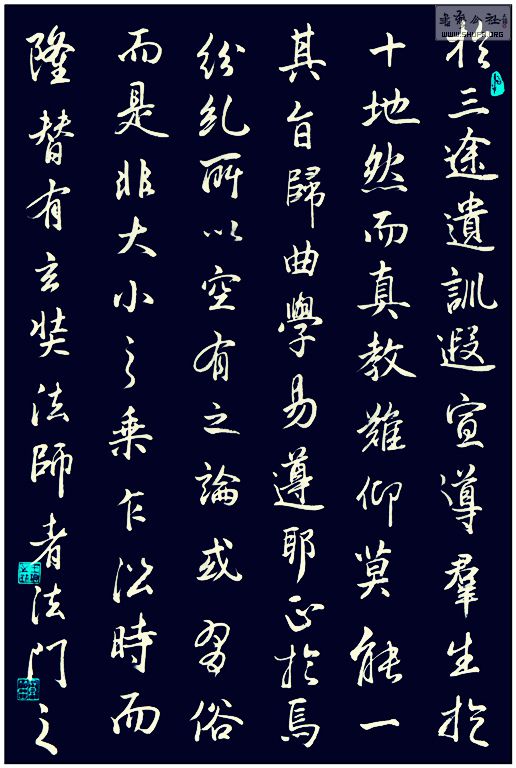 於三途遺訓遐宣導羣生於
十地然而真教難仰莫能一
其旨歸曲學易遵耶正於焉
紛糺所以空有之論或習俗
而是非大小之乘乍沿時而
隆替有玄奘法師者法門之